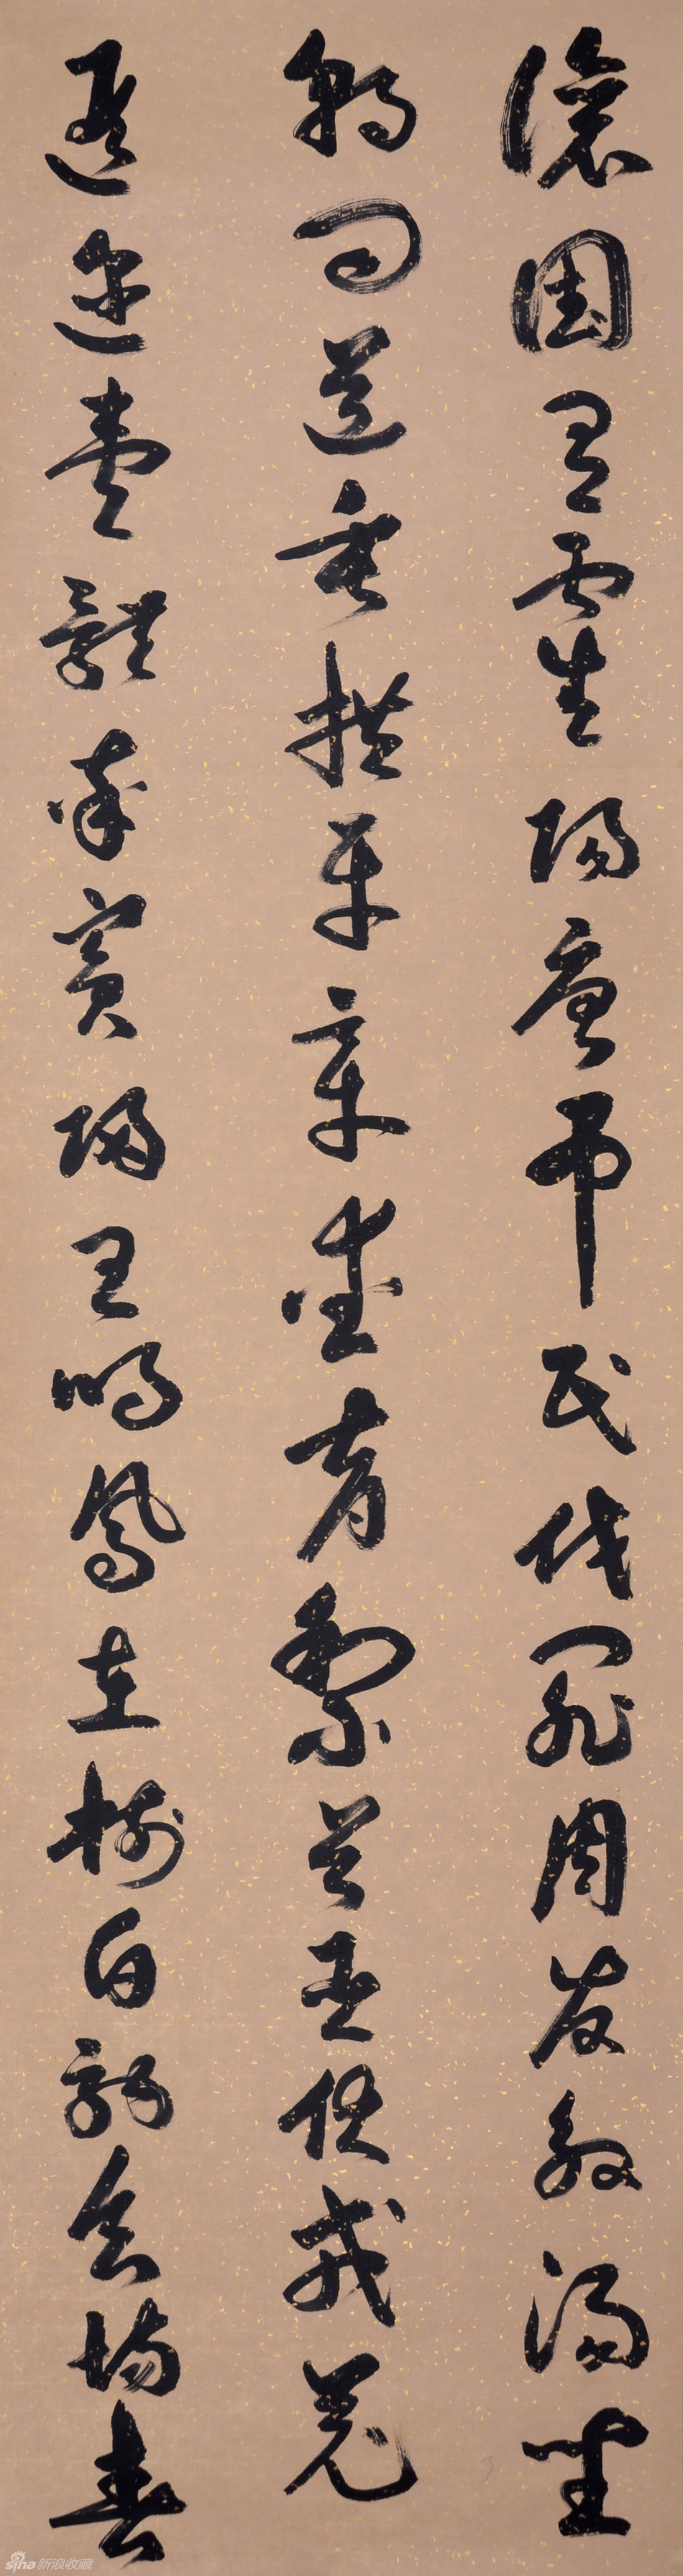 讓國有虞陶唐弔民伐罪周發殷湯坐
朝問道垂拱平章愛育黎首臣伏戎羌
遐邇壹體率賓歸王鳴鳳在樹白駒食場
sina新浪收藏